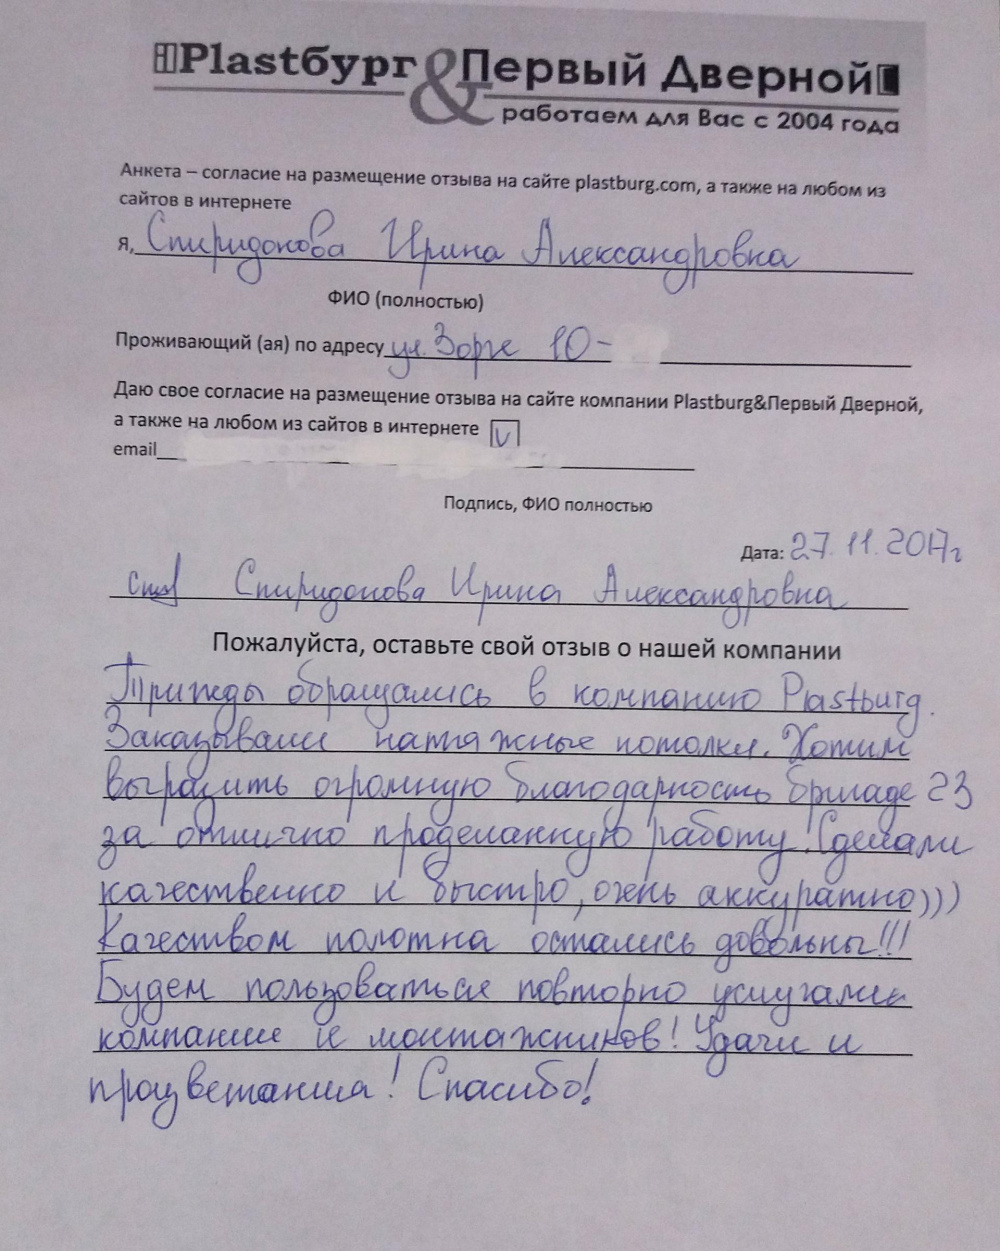 Plastбург & Первый Дверной
работаем для Вас с 2004 года
Анкета – согласие на размещение отзыва на сайте plastburg.com, а также на любом из
сайтов в интернете
Я, Спиридонова Ирина Александровна
ФИО (полностью)
Проживающий (ая) по адресу ул. Зорге 10-
Даю свое согласие на размещение отзыва на сайте компании Plastburg&Первый Дверной,
а также на любом из сайтов в интернете V
email
Подпись, ФИО полностью
Дата: 27.11.2017г
Спиридонова Ирина Александровна
Пожалуйста, оставьте свой отзыв о нашей компании
Трижды обращались в компанию Plastburg.
Заказывали натяжные потолки. Хотим
выразить огромную благодарность бригаде 23
за отлично проделанную работу. Сделали
качественно и быстро, очень аккуратно)))
Качеством полотна остались довольны!!!
Будем пользоваться повторно услугами
компании и монтажников! Удачи и
процветания! Спасибо!